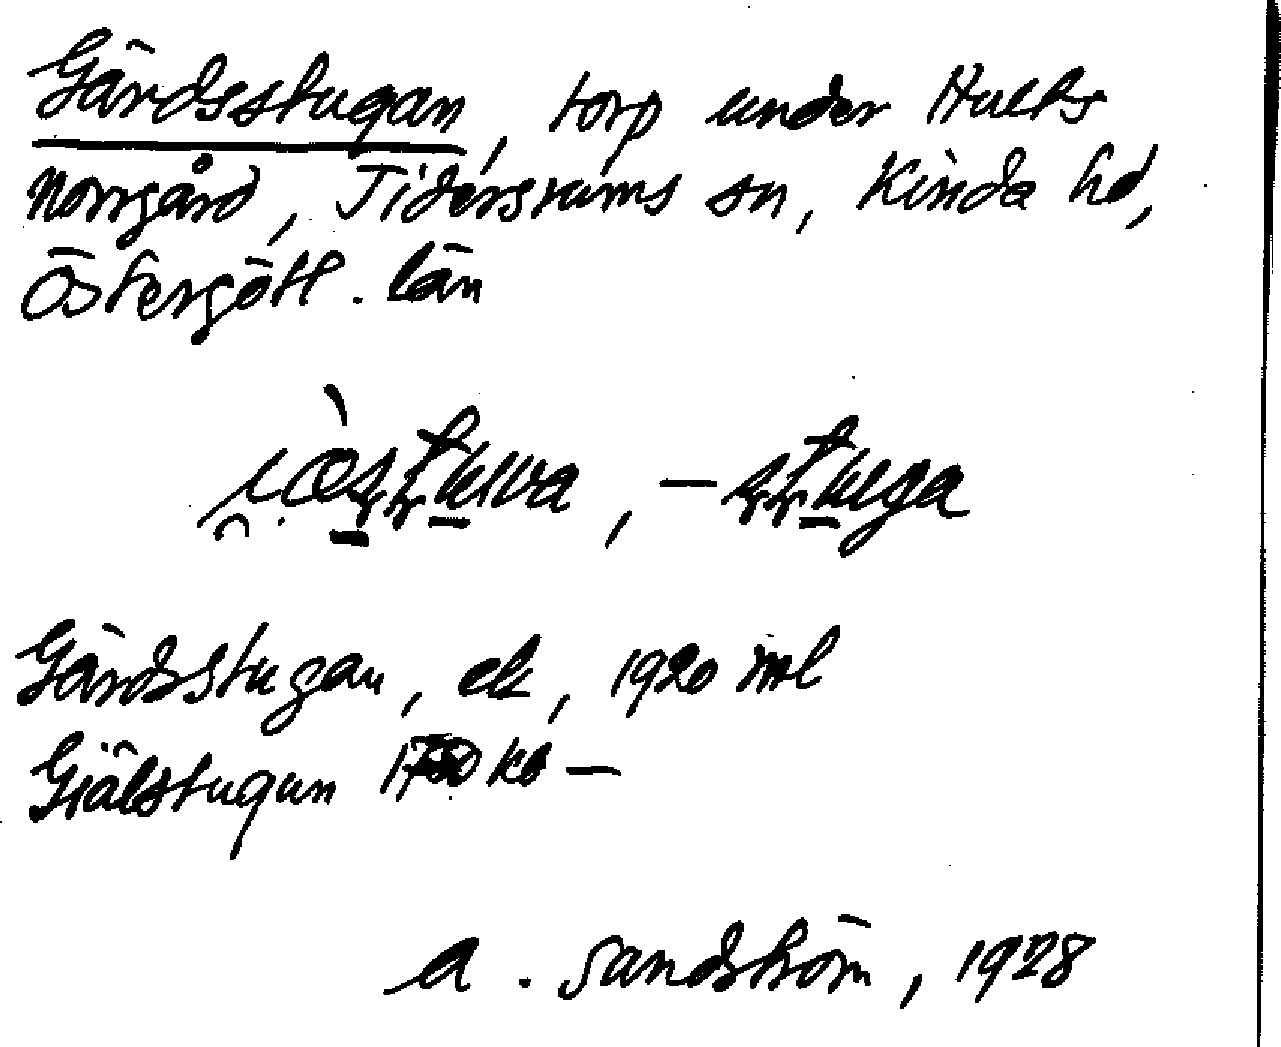 Gärdsstugan, torp under Hults
Norrgård, Tidersrums sn, Kinda hd,
Östergötl. län
Gärdsstugan, ek, 1920 ml
Giälstugun 1750 kb —
A. Sandström, 1928